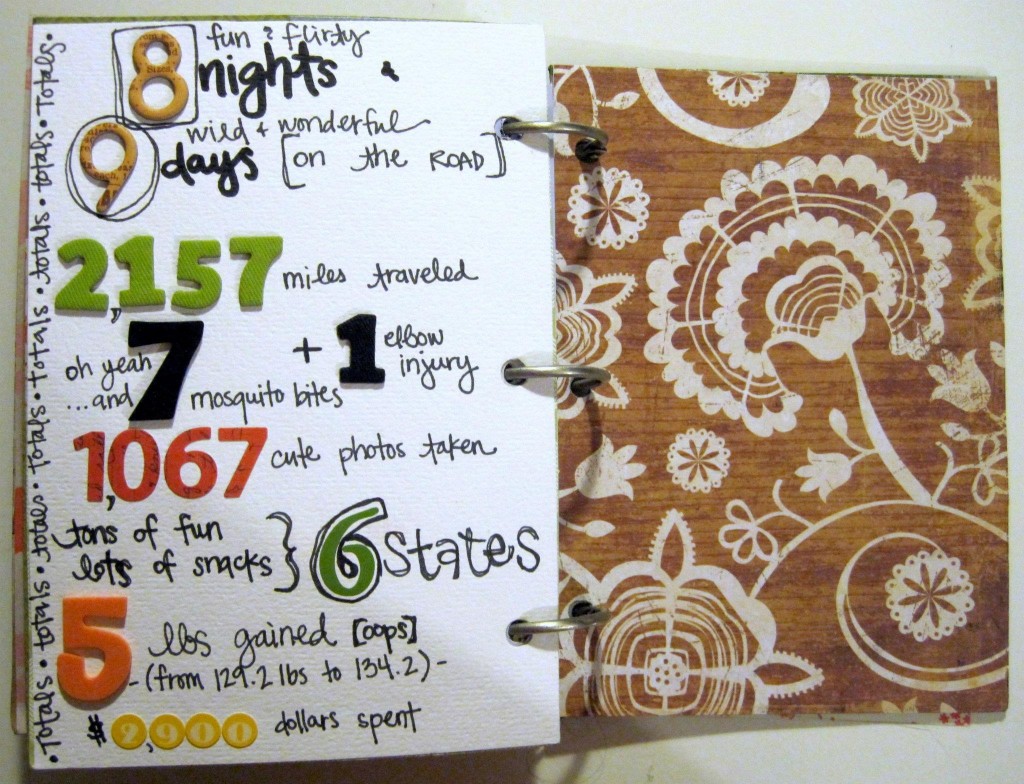 • Totals • totals • totals • Totals • totals • totals • totals • Totals •
8 fun & flirty
nights &
9 wild + wonderful
days [on the ROAD]
2,157 miles traveled
oh yeah
...and 7 mosquito bites
+ 1 elbow
injury
1,067 cute photos taken
tons of fun
lots of snacks } 6 states
5 lbs gained [oops]
-(from 129.2 lbs to 134.2)-
$2,900 dollars spent